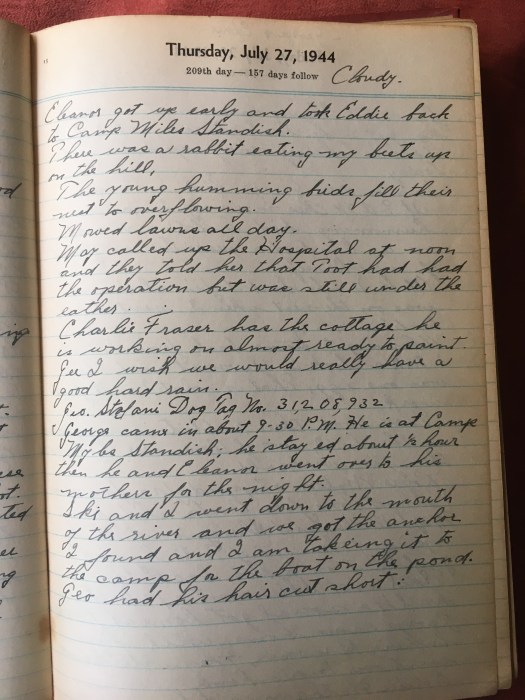 Thursday, July 27, 1944
209th day — 157 days follow Cloudy.
Eleanor got up early and took Eddie back
to Camp Miles Standish.
There was a rabbit eating my beets up
on the hill,
The young humming birds fill their
nest to overflowing.
Mowed lawns all day.
May called up the Hospital at noon
and they told her that Toot had had
the operation but was still under the
eather.
Charlie Fraser has the cottage he
is working on almost ready to paint.
Gee I wish we would really have a
good hard rain.
Geo. Stefani Dog Tag No. 31,208,932
George came in about 9-30 P.M. He is at Camp
Myles Standish; he stayed about ½ hour
then he and Eleanor went over to his
mothers for the night.
Ski and I went down to the mouth
of the river and we got the anchor
I found and I am takeing it to
the camp for the boat on the pond.
Geo had his hair cut short.